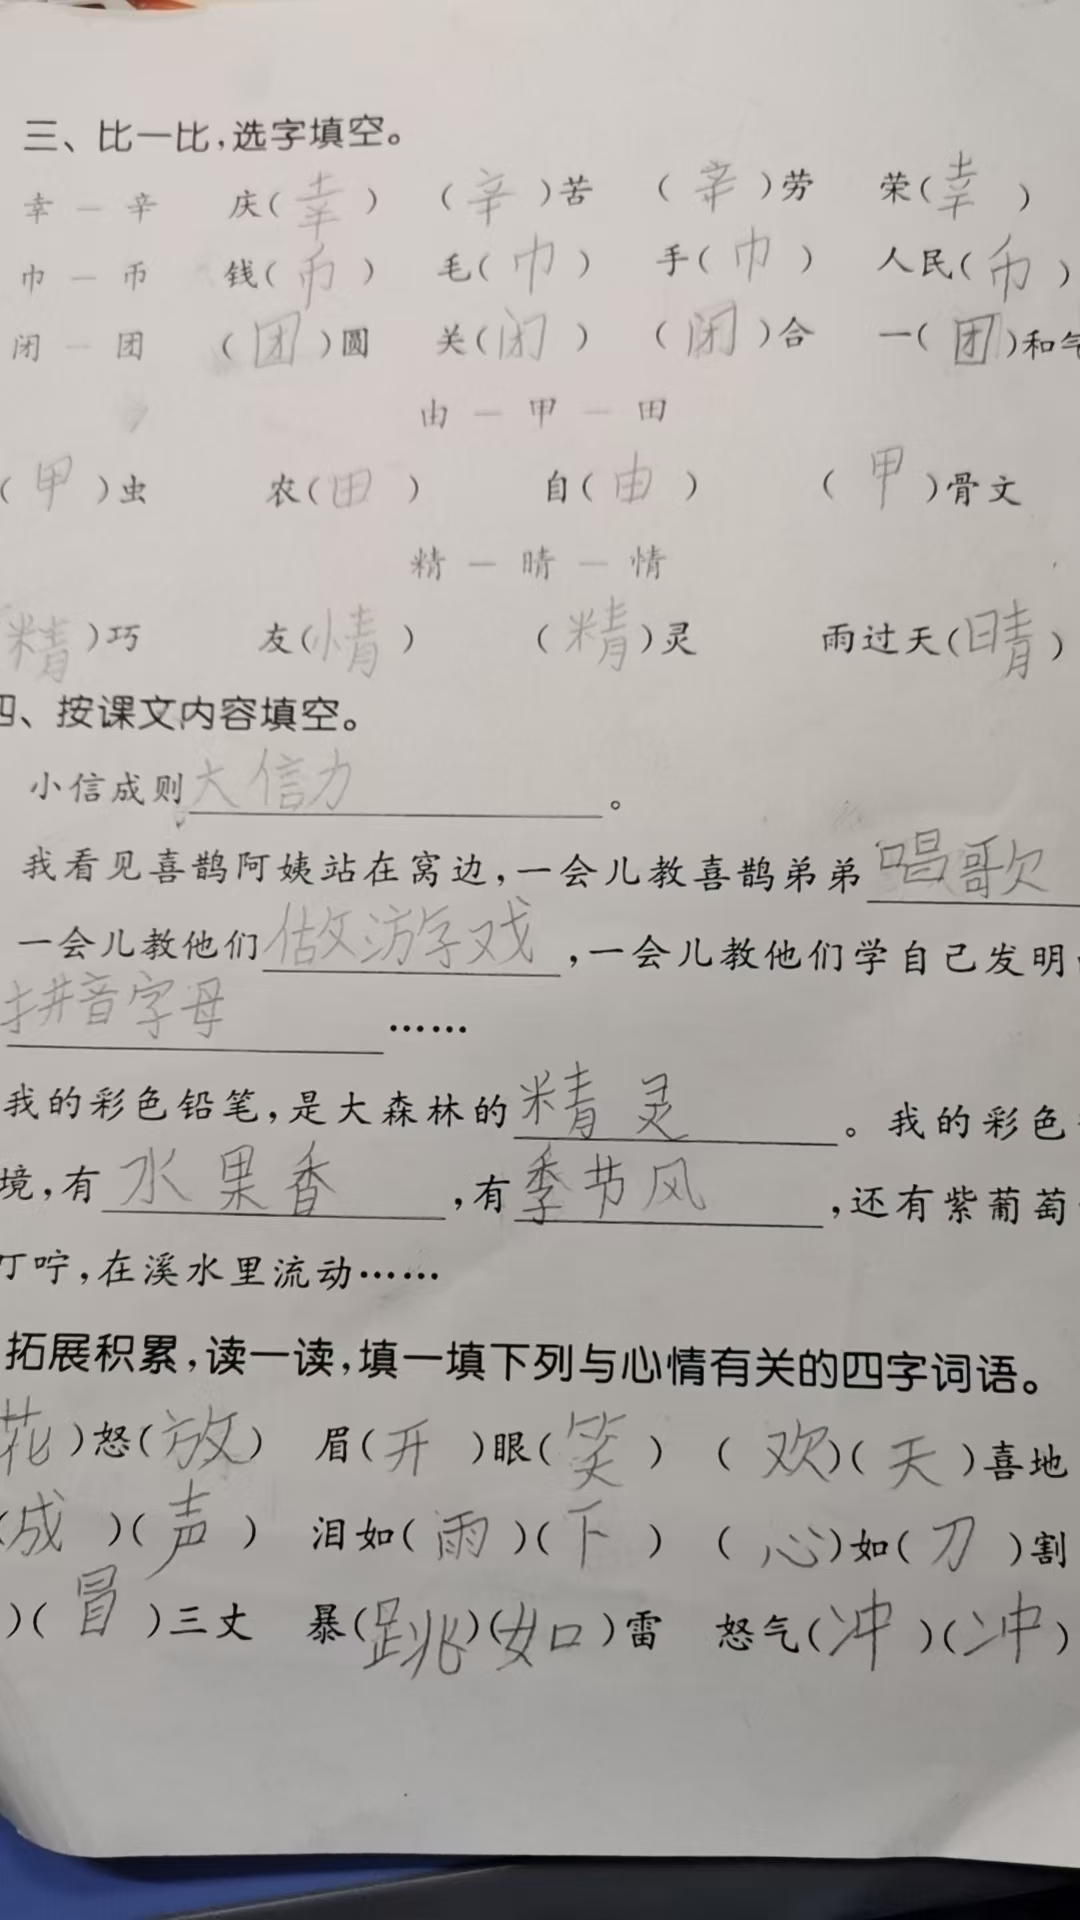 三、比一比,选字填空。
幸 — 辛 庆(幸) (辛)苦 (辛)劳 荣(幸)
巾 — 币 钱(币) 毛(巾) 手(巾) 人民(币)
闭 — 团 (团)圆 关(闭) (闭)合 一(团)和气
由 — 甲 — 田
(甲)虫 农(田) 自(由) (甲)骨文
精 — 晴 — 情
精)巧 友(情) (精)灵 雨过天(晴)
四、按课文内容填空。
小信成则大信力。
我看见喜鹊阿姨站在窝边,一会儿教喜鹊弟弟唱歌
一会儿教他们做游戏,一会儿教他们学自己发明
拼音字母……
我的彩色铅笔,是大森林的精灵。我的彩色
境,有水果香,有季节风,还有紫葡萄
叮咛,在溪水里流动……
拓展积累,读一读,填一填下列与心情有关的四字词语。
花)怒(放) 眉(开)眼(笑) (欢)(天)喜地
(成)(声) 泪如(雨)(下) (心)如(刀)割
)(冒)三丈 暴(跳)(如)雷 怒气(冲)(冲)